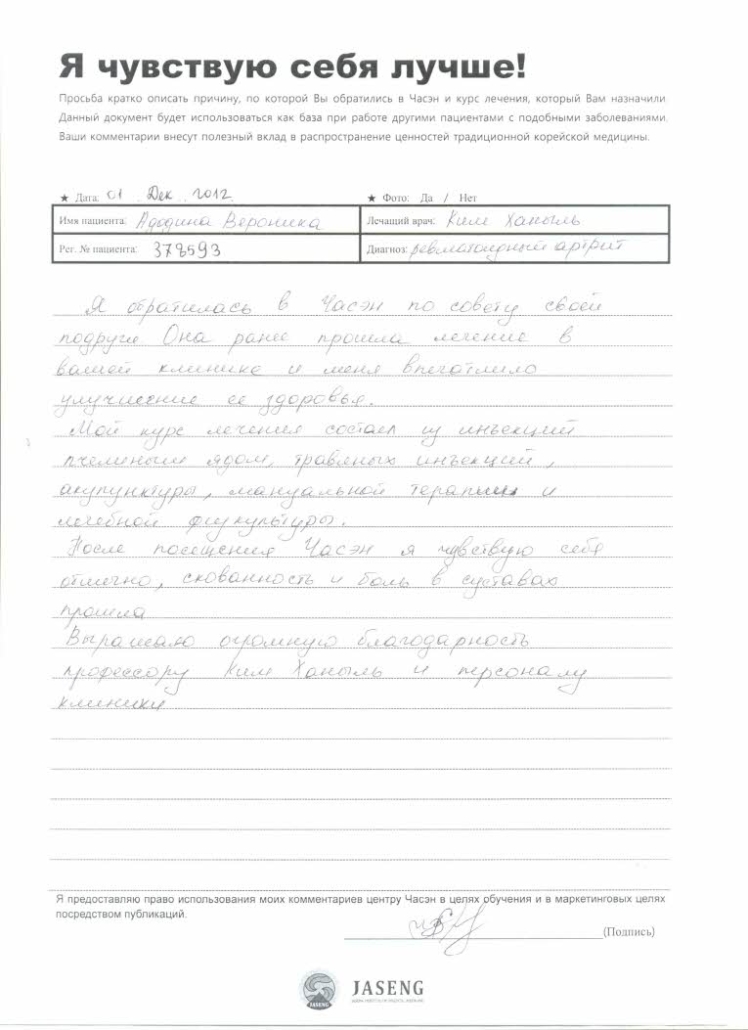 Я чувствую себя лучше!
Просьба кратко описать причину, по которой Вы обратились в Часэн и курс лечения, который Вам назначили
Данный документ будет использоваться как база при работе другими пациентами с подобными заболеваниями.
Ваши комментарии внесут полезный вклад в распространение ценностей традиционной корейской медицины.
★ Дата: 01 Дек 2012 ★ Фото: Да / Нет
Имя пациента: Вероника Лечащий врач: Ким Ханыль
Рег. № пациента: 378593 Диагноз: ревматоидный артрит
Я обратилась в Часэн по совету своей
подруги Она ранее прошла лечение в
вашей клинике и меня впечатлило
улучшение ее здоровья.
Мой курс лечения состоял из инъекций
пчелиным ядом, травяных инъекций,
акупунктуры, мануальной терапии и
лечебной физкультуры.
После посещения Часэн я чувствую себя
отлично, скованность и боль в суставах
прошла
Выражаю огромную благодарность
профессору Ким Ханыль и персоналу
клиники
Я предоставляю право использования моих комментариев центру Часэн в целях обучения и в маркетинговых целях
посредством публикаций.
(Подпись)
JASENG
JASENG